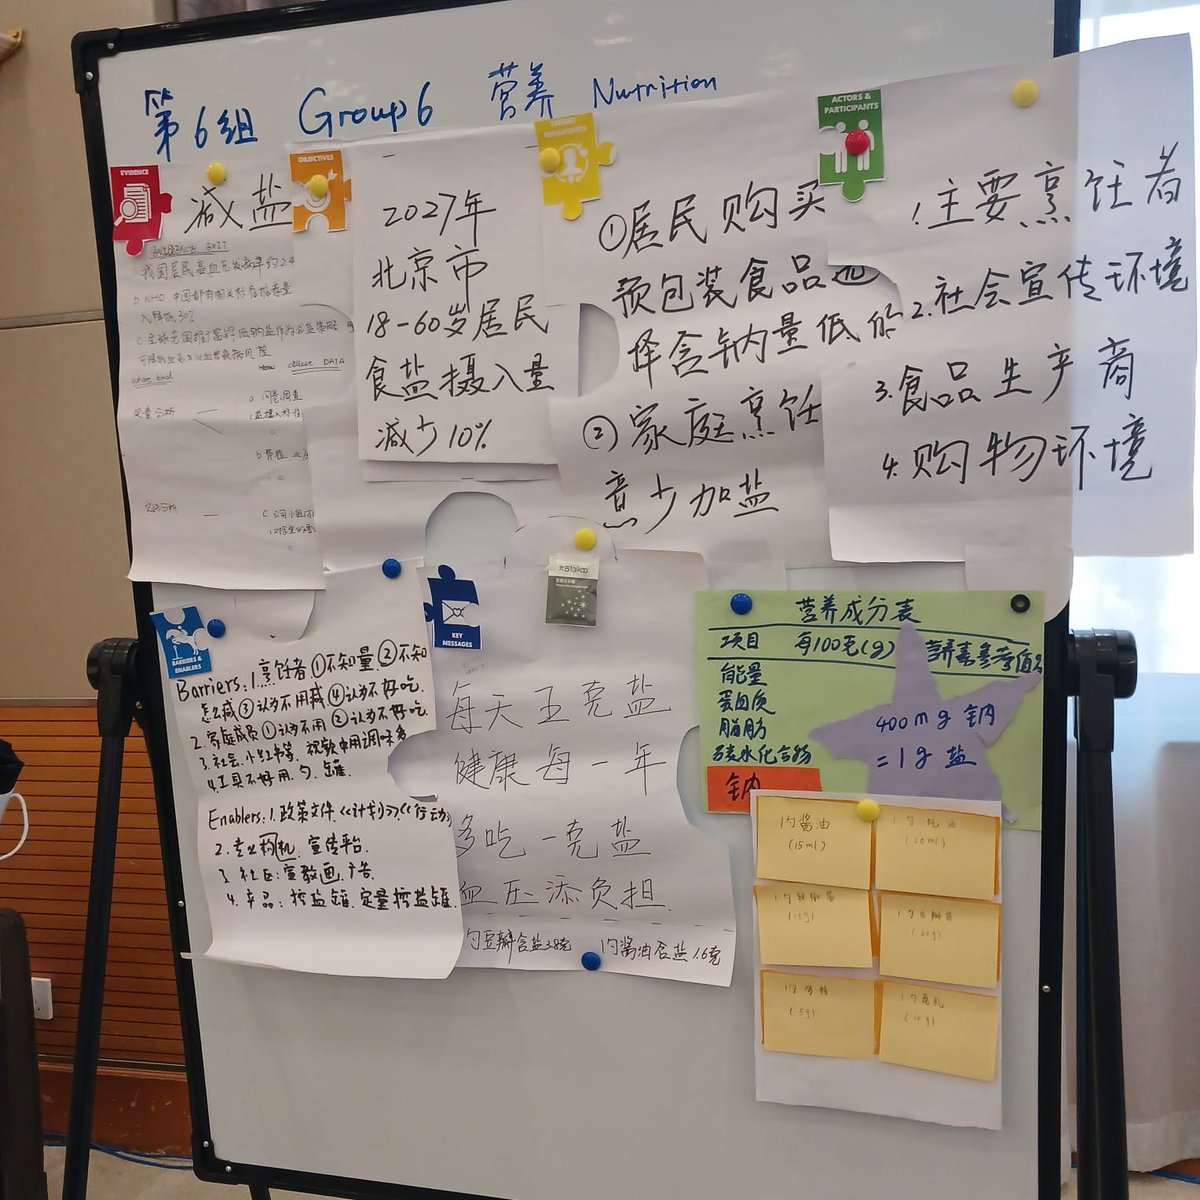 第6组 Group6 营养 Nutrition
EVIDENCE
减盐
我国居民高血压发病率约24
b WHO、中国都有相关标准推荐量
入降低30%
what kind
How collect DATA
定量分析
a 问卷调查
定性分析
OBJECTIVES
2027年
北京市
18-60岁居民
食盐摄入量
减少10%
TARGET BEHAVIOURS
①居民购买
预包装食品选
择含钠量低的
②家庭烹饪
意少加盐
ACTORS & PARTICIPANTS
1.主要烹饪者
2.社会宣传环境
3.食品生产商
4.购物环境
BARRIERS & ENABLERS
Barriers: 1.烹饪者 ①不知量 ②不知
怎么减 ③认为不用减 ④认为不好吃.
2.家庭成员 ①认为不用 ②认为不好吃.
3.社会.小红书等.视频中用调味多
4.工具不好用.勺.罐.
Enablers: 1.政策文件《计划》、《行动》
2.专业构机.宣传平台.
3.社区:宣教画.广告
4.产品:控盐罐.定量控盐罐.
KEY MESSAGES
太古taikoo
每天五克盐
健康每一年
多吃一克盐
血压添负担
勺豆瓣含盐3.8克 1勺酱油含盐1.6克
营养成分表
项目 每100克(g) 营养素参考值%
能量
蛋白质
脂肪
碳水化合物
钠
400mg 钠
=1g 盐
1勺酱油
(15ml)
1勺蚝油
(20ml)
(15g)
1勺豆瓣酱
(20g)
1勺鸡精
(5g)
1勺腐乳
(10g)